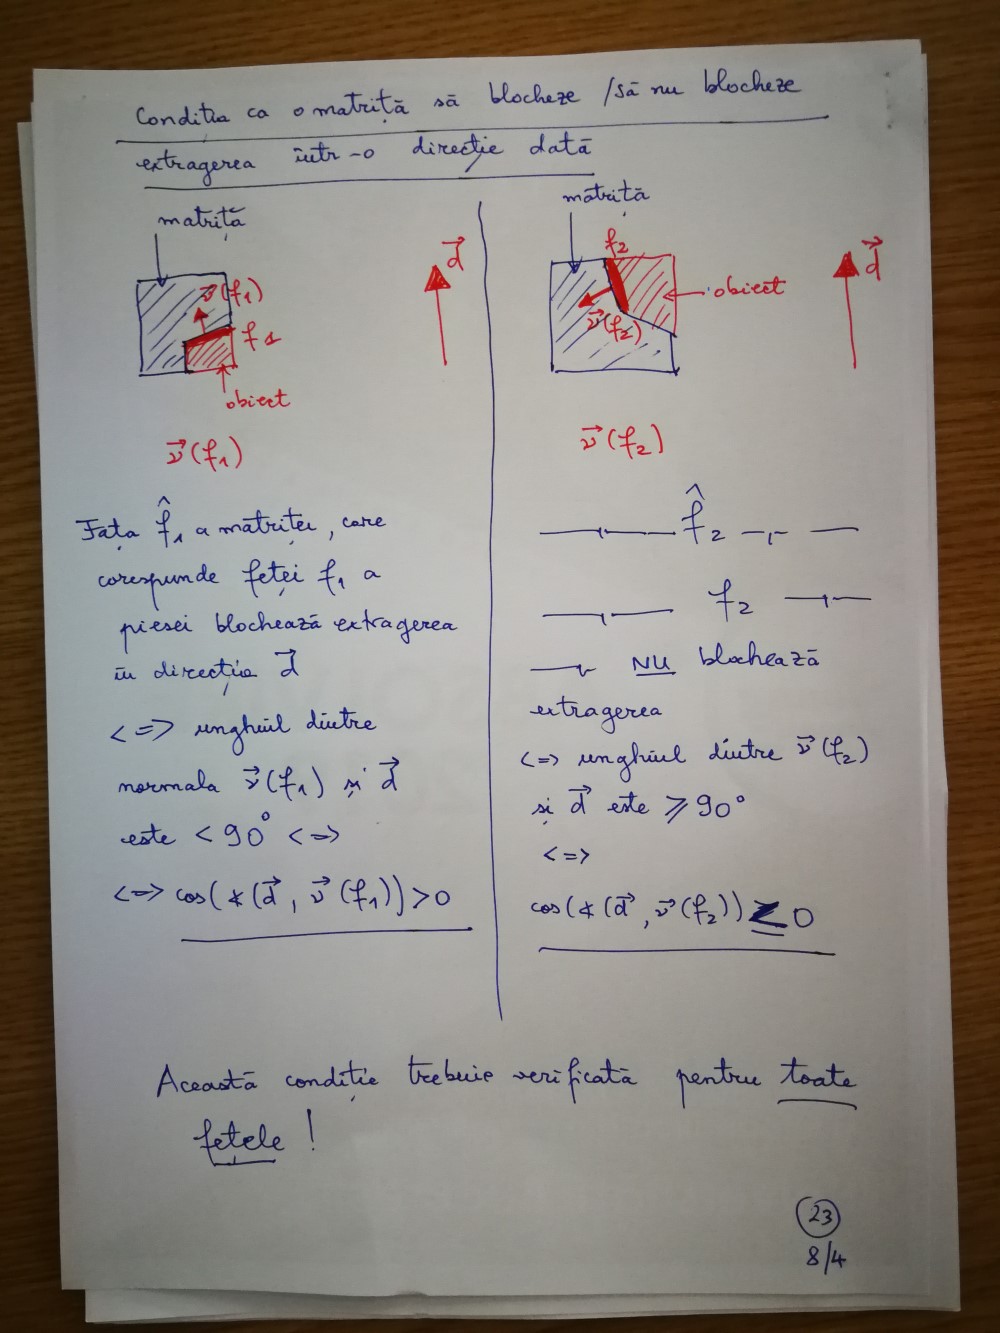 Conditia ca o matriță să blocheze / să nu blocheze
extragerea într-o direcție dată
matriță
ν(f1)
f1
obiect
d⃗
ν⃗(f1)
Fața f̂1 a matriței, care
corespunde feței f1 a
piesei blochează extragerea
în direcția d⃗
<=> unghiul dintre
normala ν⃗(f1) și d⃗
este < 90° <=>
<=> cos(∢(d⃗, ν⃗(f1)) > 0
matriță
f2
obiect
ν⃗(f2)
d⃗
ν⃗(f2)
—"— f̂2 —"—
—"— f2 —"—
—"— NU blochează
extragerea
<=> unghiul dintre ν⃗(f2)
și d⃗ este ⩾ 90°
<=>
cos(∢(d⃗, ν⃗(f2)) ≤ 0
Această condiție trebuie verificată pentru toate
fețele !
23
8/4